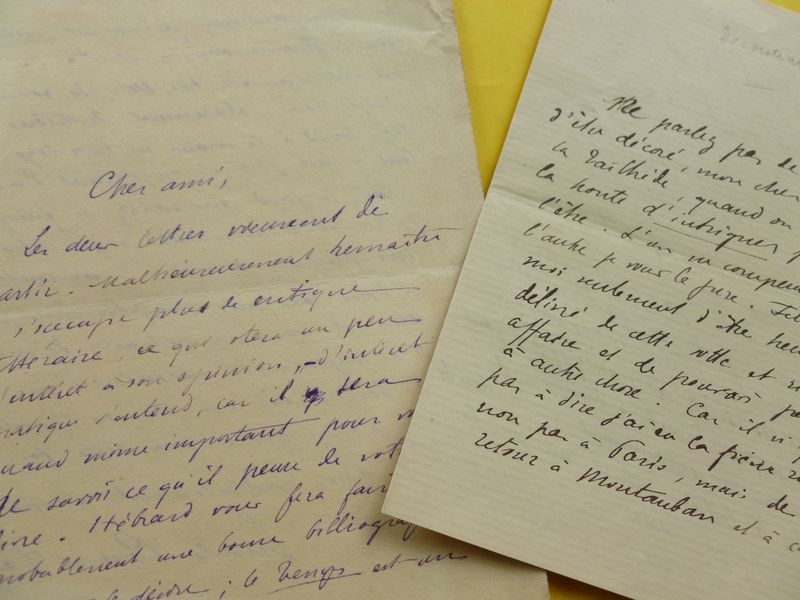 Cher ami,
Les deux lettres viennent de
partir. Malheureusement Lemaître
s'occupe plus de critique
littéraire, ce qui ôtera un peu
d'intérêt à son opinion, – d'intérêt
pratique s'entend, car il sera
quand même important pour v
de savoir ce qu'il pense de vot
livre. Hébrard vous fera fair
probablement une bonne bibliograp
le Temps est un
Ne parlez pas de
d'être décoré, mon cher
la Tailhède, quand on
la honte d'intriguer p
l'être. L'un va compens
l'autre je vous le jure.
moi seulement d'être heu
délivré de cette sotte et
affaire et de pouvoir pe
à autre chose. Car il n'
pas à dire j'ai eu la fièvre
non pas à Paris, mais de
retour à Montauban et à c